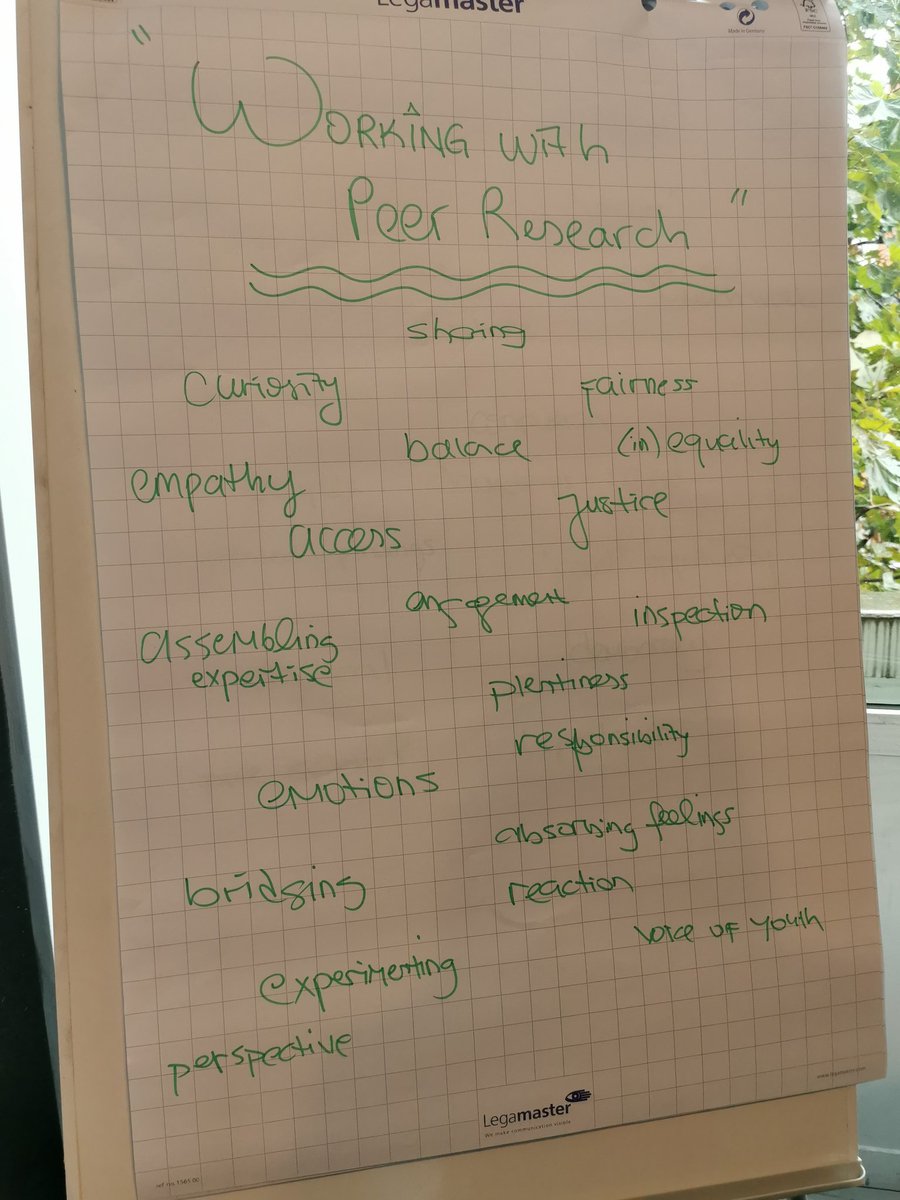 Legamaster
Made in Germany
"WORKING WITH
Peer Research"
sharing
curiosity
fairness
balace
(in)equality
empathy
justice
access
inspection
assembling
expertise
plentiness
responsibility
emotions
absorbing feelings
bridging
reaction
voice of youth
experimenting
perspective
Legamaster
We make communication visible
www.legamaster.com